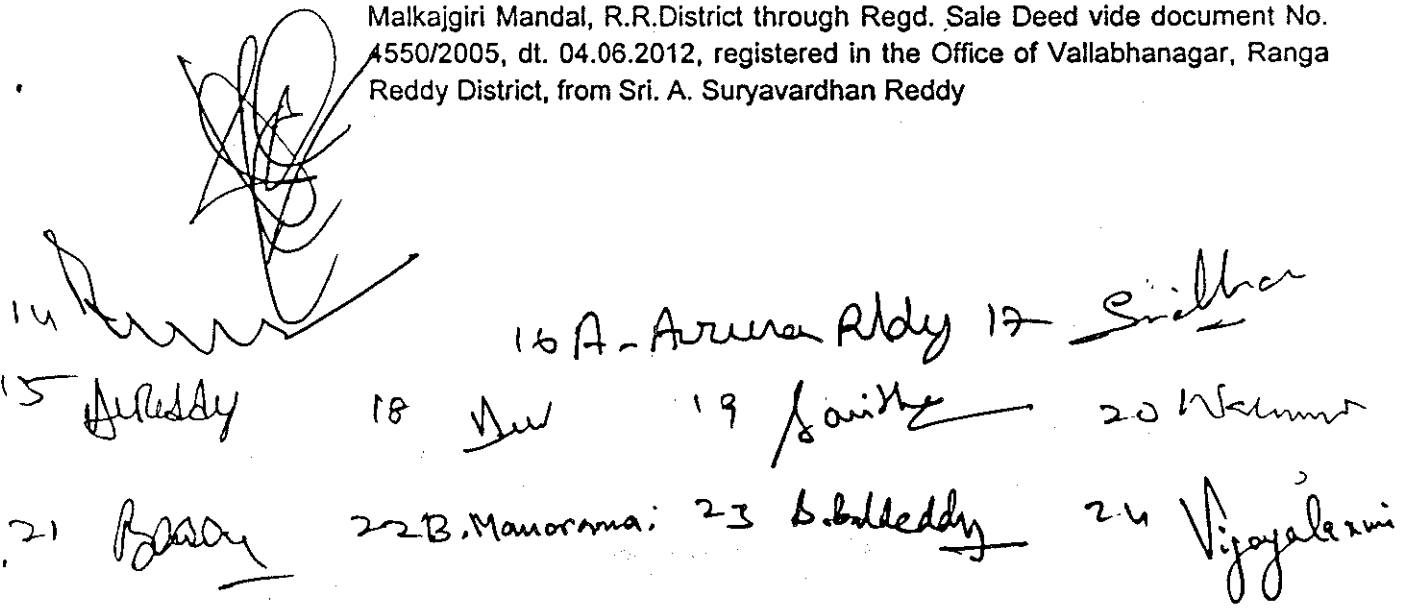 Malkajgiri Mandal, R.R.District through Regd. Sale Deed vide document No.
4550/2005, dt. 04.06.2012, registered in the Office of Vallabhanagar, Ranga
Reddy District, from Sri. A. Suryavardhan Reddy
14
16 A- Aruna Reddy 17 Sridhar
15 18 19 20
21 22 B. Manorama 23 24 Vijayalaxmi